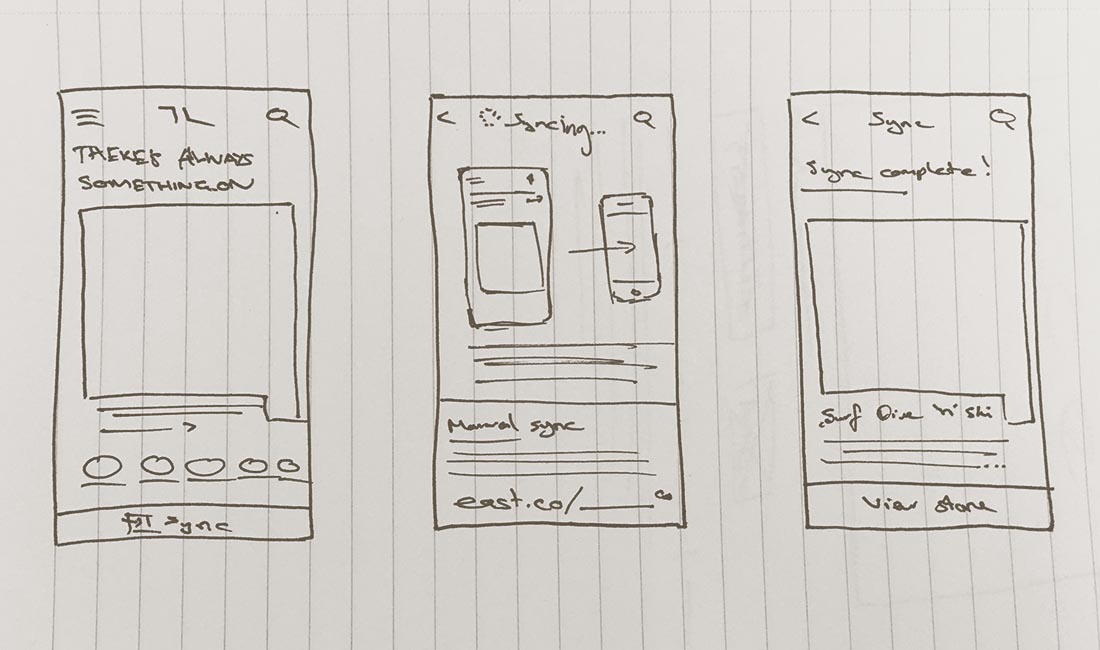 THERE'S ALWAYS
SOMETHING ON
Sync
Syncing...
Manual sync
east.co/
Sync
Sync complete!
Surf Dive 'n' Ski
...
View store